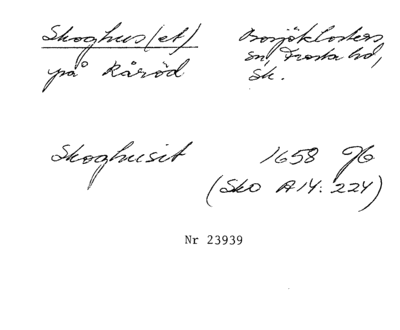 Skoghus(et)
på Råröd
Bosjöklosters
sn, Frosta hd,
Sk.
Skoghusit
1658 Jb
(Skö A14: 224)
Nr 23939